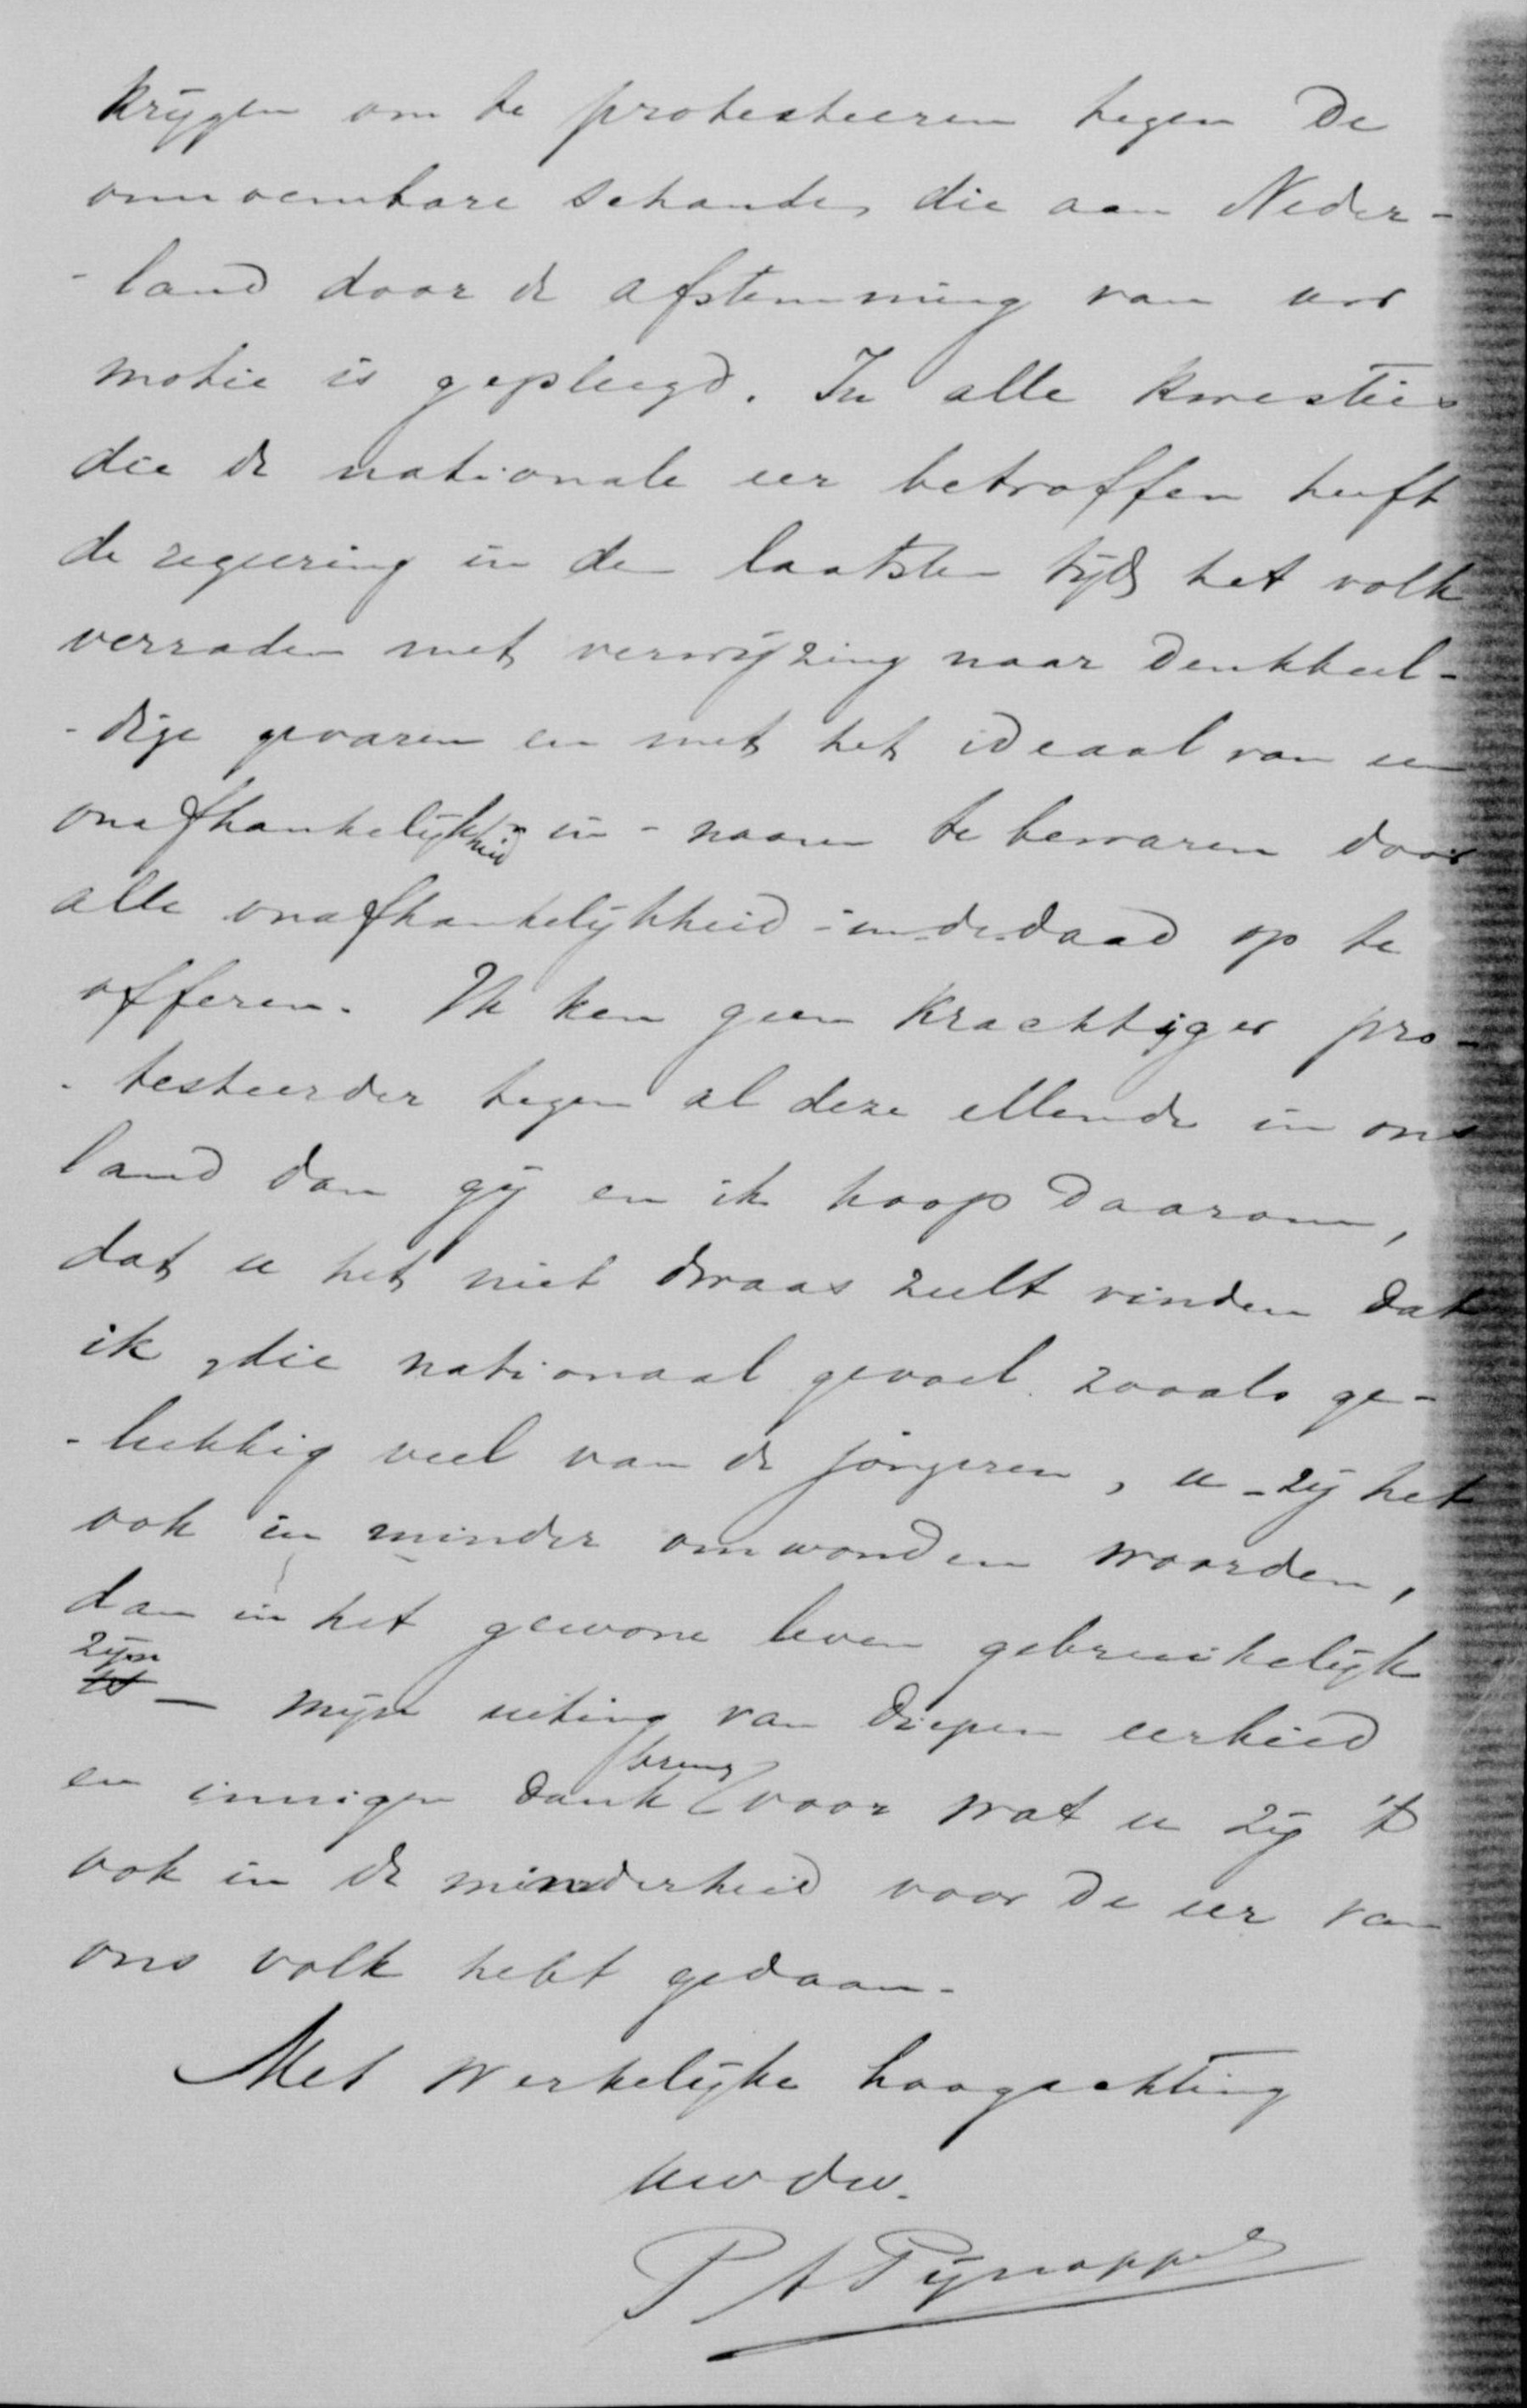 krijgen om te protesteeren tegen de
onnoembare schande, die aan Neder-
-land door de afstemming van uw
motie is gepleegd. In alle kwesties
die de nationale eer betroffen heeft
de regeering in den laatsten tijd het volk
verraden met verwijzing naar denkbeel-
-dige gevaren en met het ideaal van een
onafhankelijkheid-in-naam te bewaren door
alle onafhankelijkheid-in-de-daad op te
offeren. Ik ken geen krachtiger pro-
-testeerder tegen al deze ellende in ons
land dan gij en ik hoop daarom,
dat u het niet dwaas zult vinden dat
ik, die nationaal gevoel zooals ge-
-lukkig veel van de jongeren, u - zij het
ook in minder omwonden woorden,
dan in het gewone leven gebruikelijk
zijn - mijn uiting van diepen eerbied
en innigen dank breng voor wat u zij 't
ook in de minderheid voor de eer van
ons volk hebt gedaan.
Met werkelijke hoogachting
uw dw.
P A Pijnappel